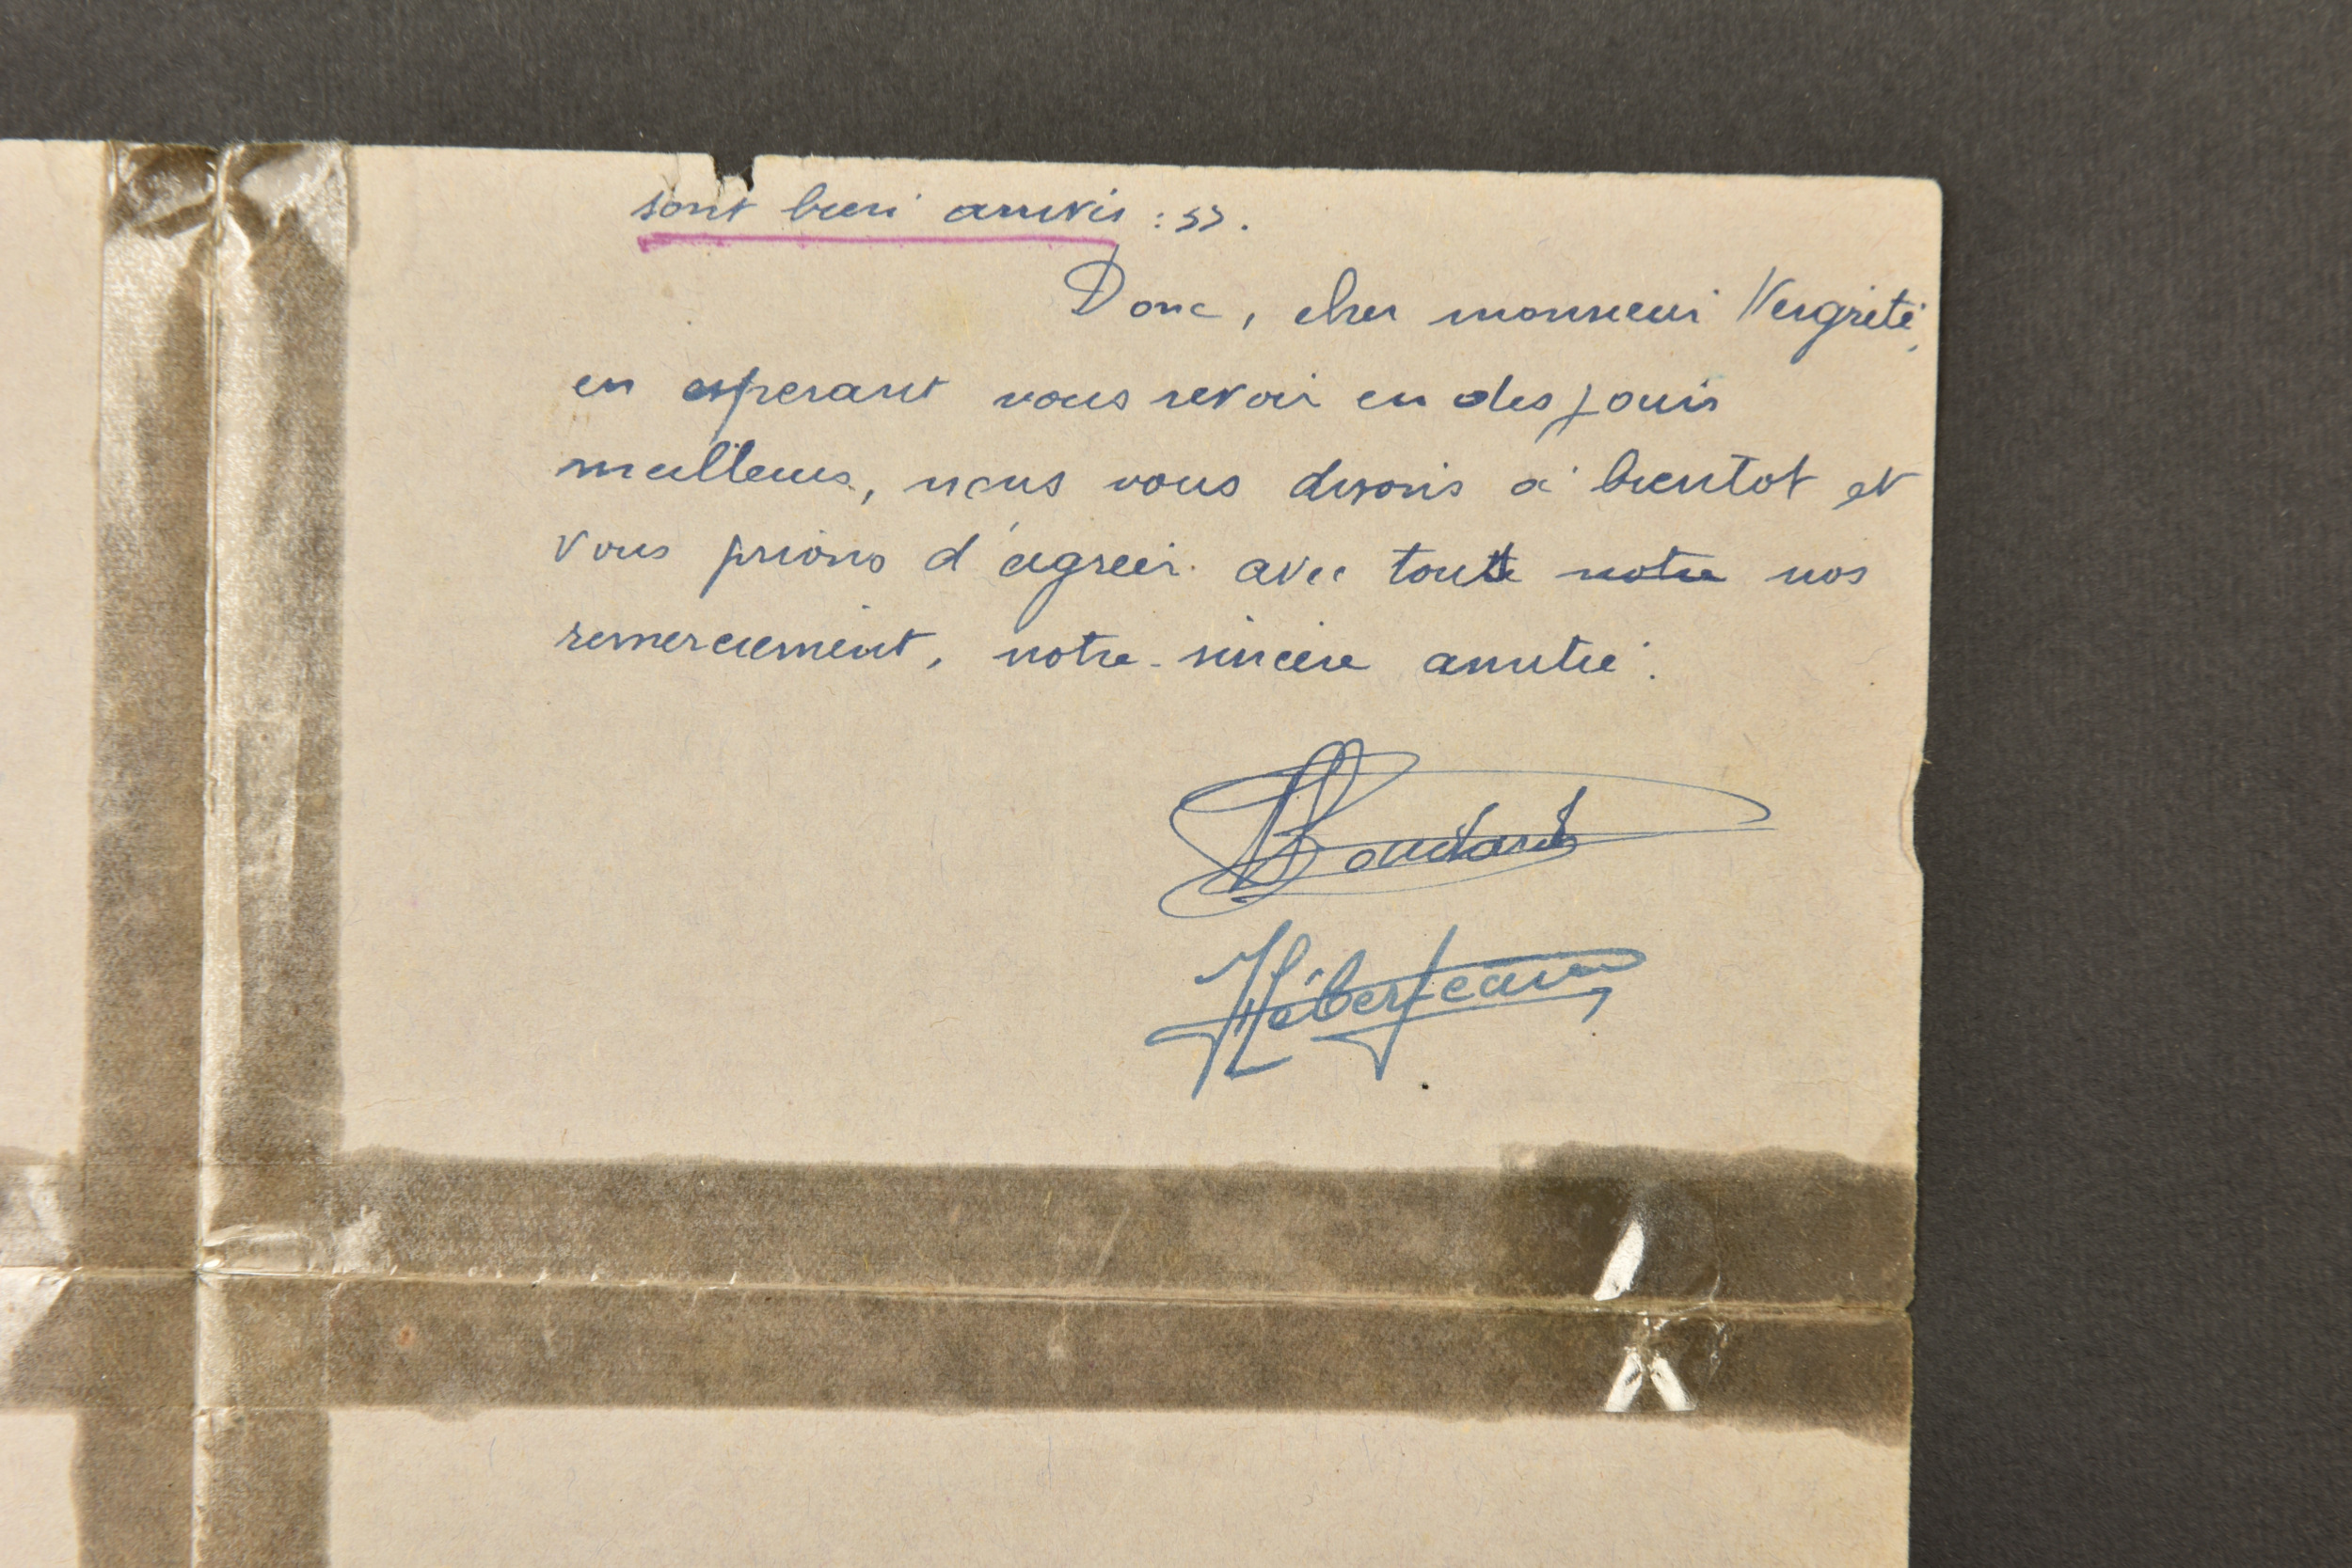 sont bien arrivés : ».
Donc, cher monsieur Vergriete,
en esperant vous revoir en des jours
meilleurs, nous vous disons à bientot et
vous prions d'agréér avec toute notre nos
remerciement, notre sincère amitié.
Boudard
Héberjean